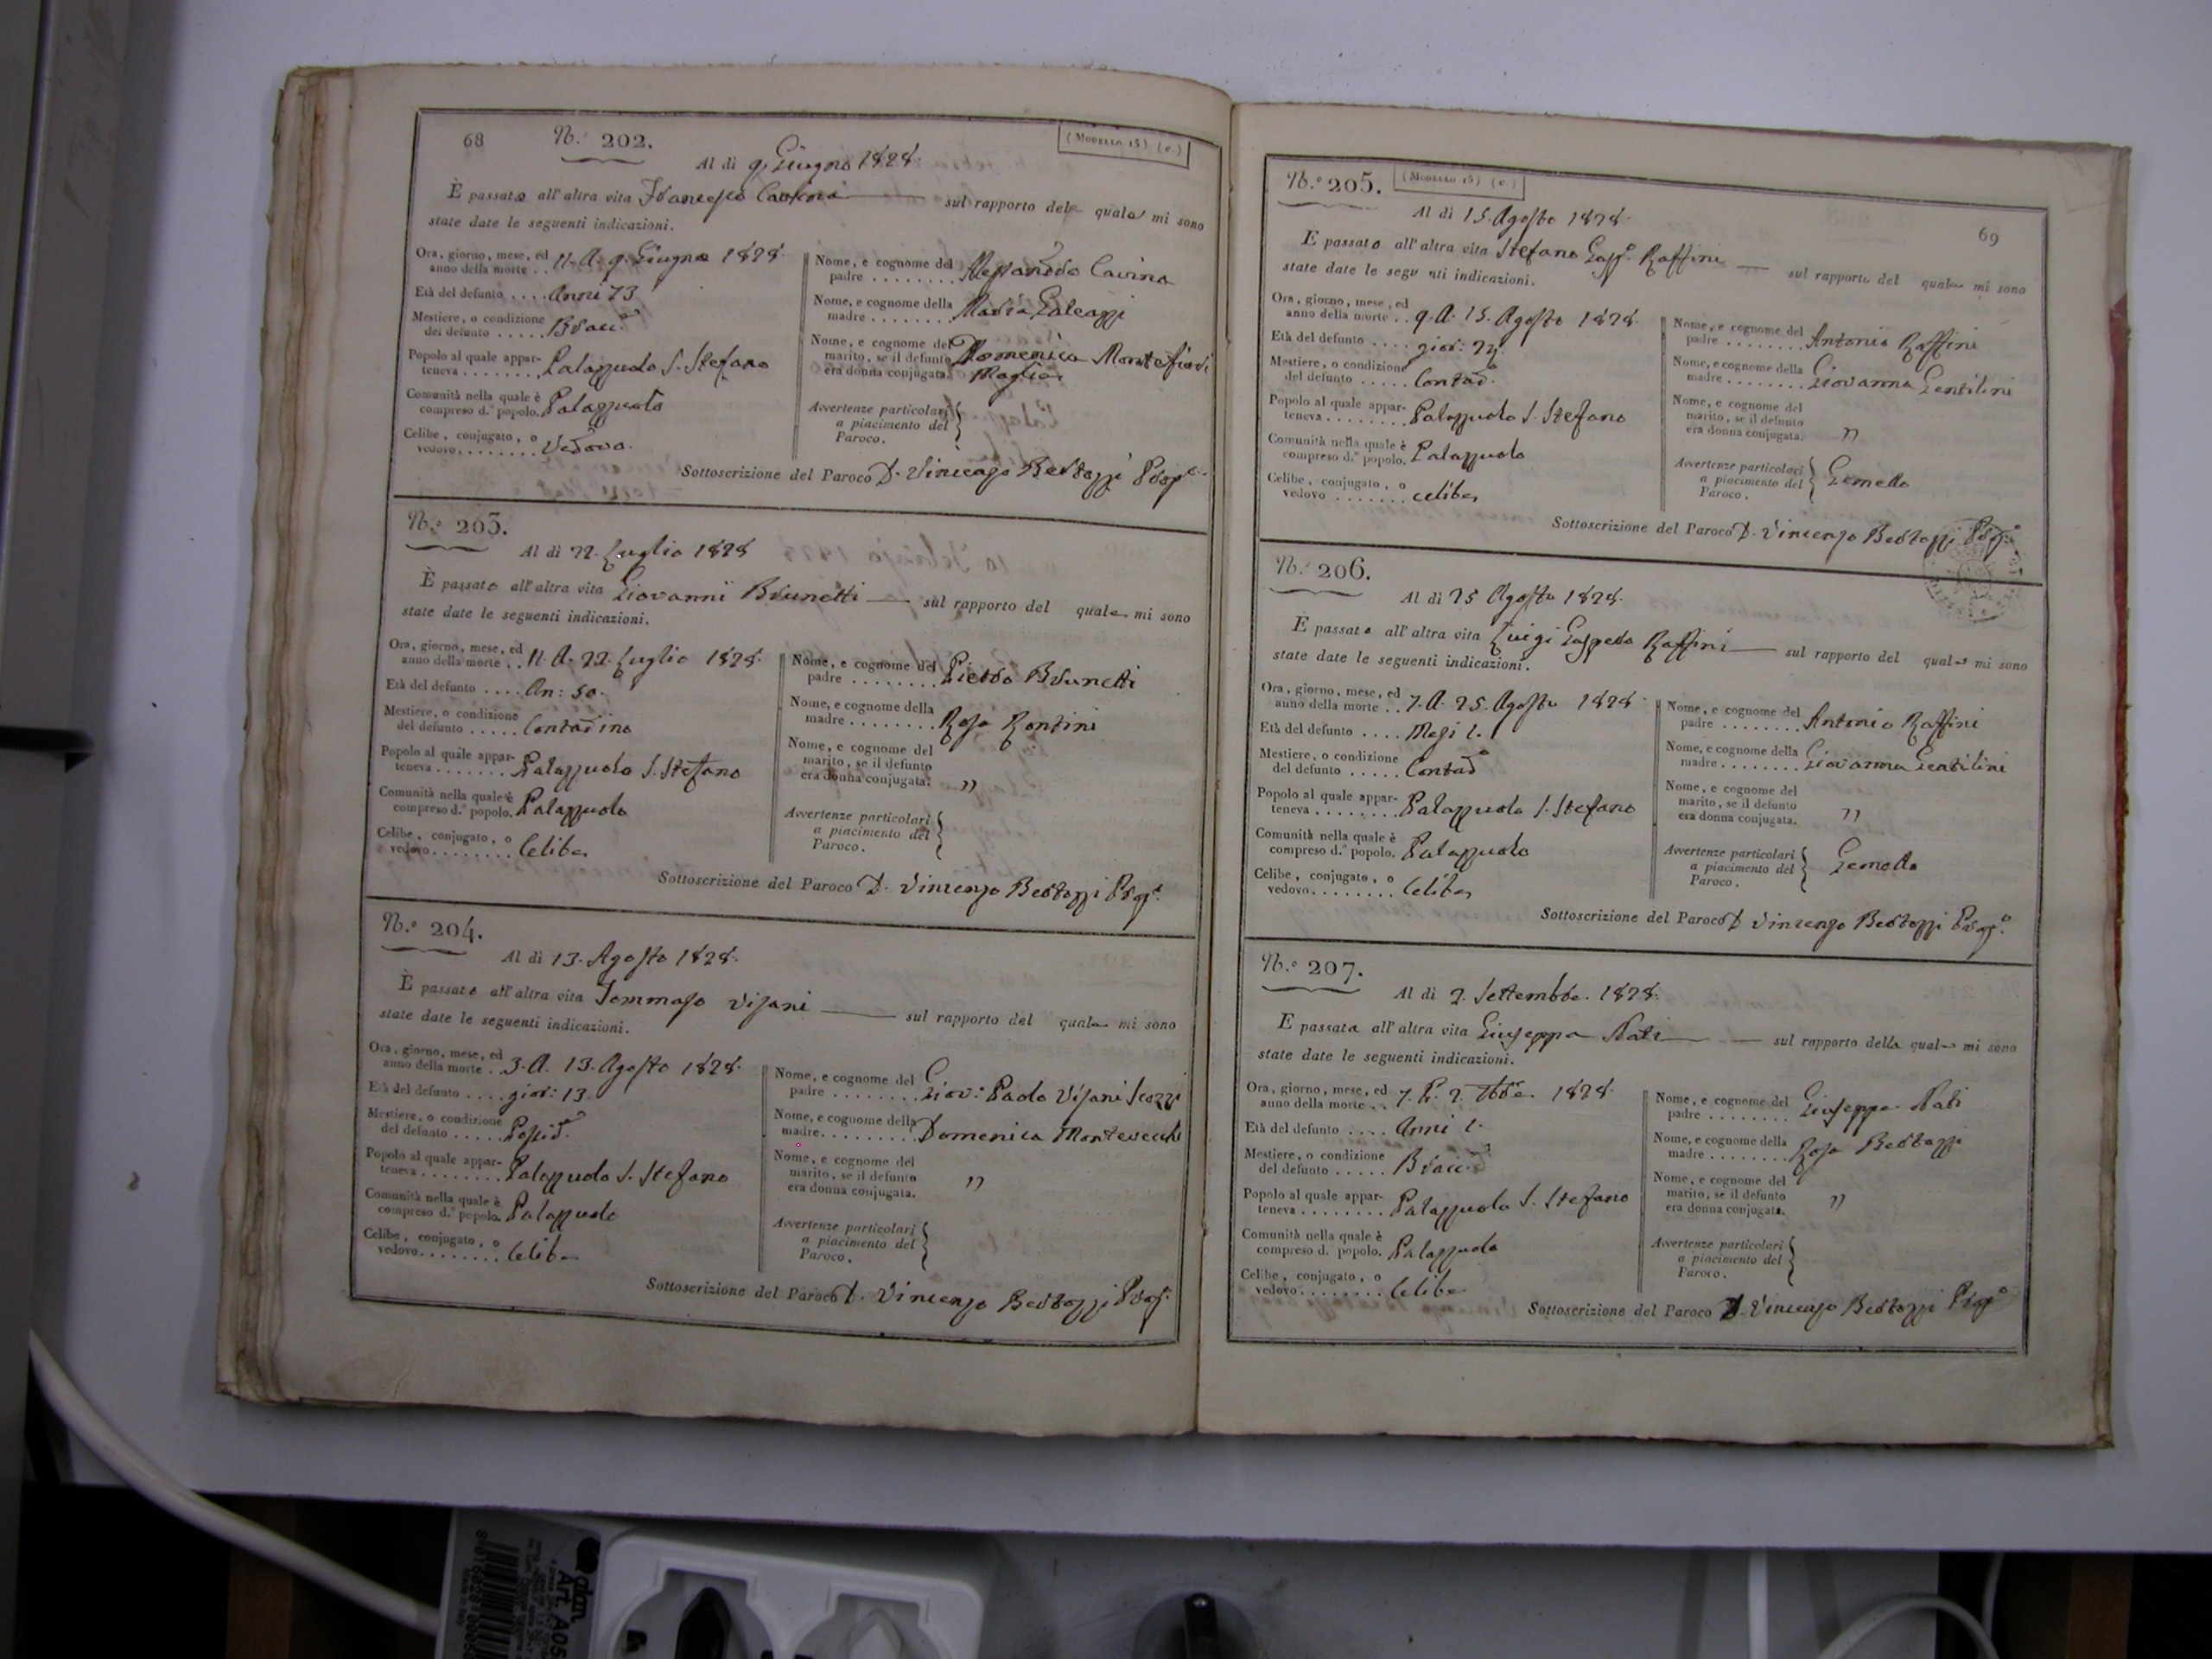 68
N.° 202.
(Modello 15) (c.)
Al dì 9. Giugno 1828.
È passato all'altra vita Francesco Cavina sul rapporto del quale mi sono
state date le seguenti indicazioni.
Ora, giorno, mese, ed
anno della morte . . 11. A. 9. Giugno 1828.
Età del defunto . . . . Anni 73
Mestiere, o condizione
del defunto . . . . .
Popolo al quale appar-
teneva . . . . . . . Palazzuolo S. Stefano
Comunità nella quale è
compreso d.° popolo. Palazzuolo
Celibe, conjugato, o
vedovo. . . . . . . . Vedovo.
Nome, e cognome del
padre . . . . . . . . Alessandro Cavina
Nome, e cognome della
madre . . . . . . . . Maria Galeazzi
Nome, e cognome del
marito, se il defunto
era donna conjugata. Domenica Montefiori
Moglie
Avvertenze particolari
a piacimento del
Paroco.
Sottoscrizione del Paroco D. Vincenzo Bertozzi
N.° 203.
Al dì 22. Luglio 1828
È passato all'altra vita Giovanni Brunetti sul rapporto del quale mi sono
state date le seguenti indicazioni.
Ora, giorno, mese, ed
anno della morte . . 11. A. 22. Luglio 1828.
Età del defunto . . . . An: 50.
Mestiere, o condizione
del defunto . . . . . Contadino
Popolo al quale appar-
teneva . . . . . . . Palazzuolo S. Stefano
Comunità nella quale è
compreso d.° popolo. Palazzuolo
Celibe, conjugato, o
vedovo. . . . . . . . Celibe
Nome, e cognome del
padre . . . . . . . . Pietro Brunetti
Nome, e cognome della
madre . . . . . . . . Rosa Rontini
Nome, e cognome del
marito, se il defunto
era donna conjugata. "
Avvertenze particolari
a piacimento del
Paroco.
Sottoscrizione del Paroco D. Vincenzo Bertozzi
N.° 204.
Al dì 13. Agosto 1828.
È passato all'altra vita Tommaso Visani sul rapporto del quale mi sono
state date le seguenti indicazioni.
Ora, giorno, mese, ed
anno della morte . . 3. A. 13. Agosto 1828.
Età del defunto . . . . gior: 13.
Mestiere, o condizione
del defunto . . . . . Possid.
Popolo al quale appar-
teneva . . . . . . . . Palazzuolo S. Stefano
Comunità nella quale è
compreso d.° popolo. Palazzuolo
Celibe, conjugato, o
vedovo. . . . . . . . Celibe
Nome, e cognome del
padre . . . . . . . . Giov: Paolo Visani Scozzi
Nome, e cognome della
madre. . . . . . . . . Domenica Montevecchi
Nome, e cognome del
marito, se il defunto
era donna conjugata. "
Avvertenze particolari
a piacimento del
Paroco.
Sottoscrizione del Paroco D. Vincenzo Bertozzi
N.° 205.
(Modello 15) (c.)
69
Al dì 15. Agosto 1828.
E passato all'altra vita Stefano Gasp.° Raffini sul rapporto del quale mi sono
state date le segu nti indicazioni.
Ora, giorno, mese, ed
anno della morte . . 9. A. 15. Agosto 1828.
Età del defunto . . . . gior:
Mestiere, o condizione
del defunto . . . . . Contad.
Popolo al quale appar-
teneva . . . . . . . . Palazzuolo S. Stefano
Comunità nella quale è
compreso d.° popolo. Palazzuolo
Celibe, conjugato, o
vedovo . . . . . . . celibe
Nome, e cognome del
padre . . . . . . . . Antonio Raffini
Nome, e cognome della
madre . . . . . . . . Giovanna Gentilini
Nome, e cognome del
marito, se il defunto
era donna conjugata. "
Avvertenze particolari
a piacimento del
Paroco. Gemello
Sottoscrizione del Paroco D. Vincenzo Bertozzi
N.° 206.
Al dì 25 Agosto 1828.
E passato all'altra vita Luigi Gaspero Raffini sul rapporto del quale mi sono
state date le seguenti indicazioni.
Ora, giorno, mese, ed
anno della morte . . 7. A. 25. Agosto 1828.
Età del defunto . . . . Mesi 1.
Mestiere, o condizione
del defunto . . . . . Contad
Popolo al quale appar-
teneva . . . . . . . . Palazzuolo S. Stefano
Comunità nella quale è
compreso d.° popolo. Palazzuolo
Celibe, conjugato, o
vedovo. . . . . . . . Celibe
Nome, e cognome del
padre . . . . . . . . Antonio Raffini
Nome, e cognome della
madre . . . . . . . . Giovanna Gentilini
Nome, e cognome del
marito, se il defunto
era donna conjugata. "
Avvertenze particolari
a piacimento del
Paroco. Gemello
Sottoscrizione del Paroco D Vincenzo Bertozzi
N.° 207.
Al dì 2. Settembre. 1828.
E passata all'altra vita Giuseppa Nati sul rapporto della quale mi sono
state date le seguenti indicazioni.
Ora, giorno, mese, ed
anno della morte . . 7. P. 2. 7bre. 1828.
Età del defunto . . . . Anni 1.
Mestiere, o condizione
del defunto . . . . .
Popolo al quale appar-
teneva . . . . . . . . Palazzuolo S. Stefano
Comunità nella quale è
compreso d. popolo. Palazzuolo
Celibe, conjugato, o
vedovo. . . . . . . . Celibe
Nome, e cognome del
padre . . . . . . . . Giuseppe Nati
Nome, e cognome della
madre . . . . . . . . Rosa Bertozzi
Nome, e cognome del
marito, se il defunto
era donna conjugata. "
Avvertenze particolari
a piacimento del
Paroco.
Sottoscrizione del Paroco D. Vincenzo Bertozzi
Art. A05